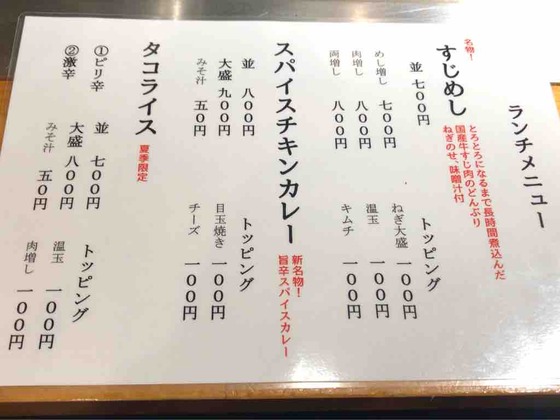 ランチメニュー
名物!
すじめし
とろとろになるまで長時間煮込んだ
国産牛すじ肉のどんぶり
ねぎのせ、味噌汁付
並 七〇〇円
めし増し 七〇〇円
肉増し 八〇〇円
両増し 八〇〇円
トッピング
ねぎ大盛 一〇〇円
温玉 一〇〇円
キムチ 一〇〇円
スパイスチキンカレー
新名物!
旨辛スパイスカレー
並 八〇〇円
大盛 九〇〇円
みそ汁 五〇円
トッピング
目玉焼き 一〇〇円
チーズ 一〇〇円
タコライス
夏季限定
①ピリ辛
②激辛
並 七〇〇円
大盛 八〇〇円
みそ汁 五〇円
トッピング
温玉 一〇〇円
肉増し 一〇〇円